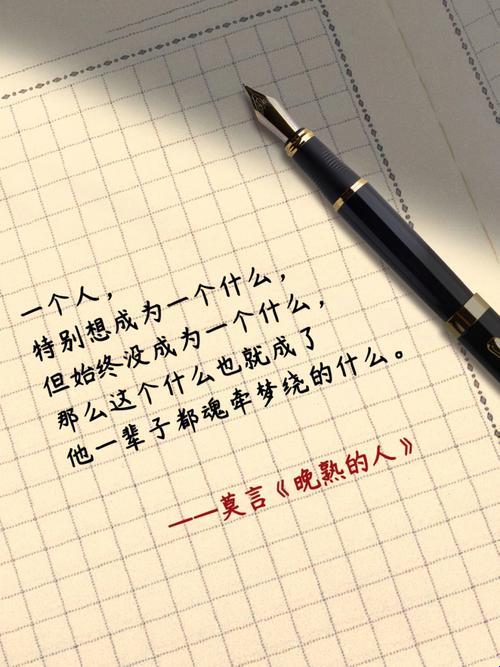 一个人，
特别想成为一个什么，
但始终没成为一个什么，
那么这个什么也就成了
他一辈子都魂牵梦绕的什么。
——莫言《晚熟的人》